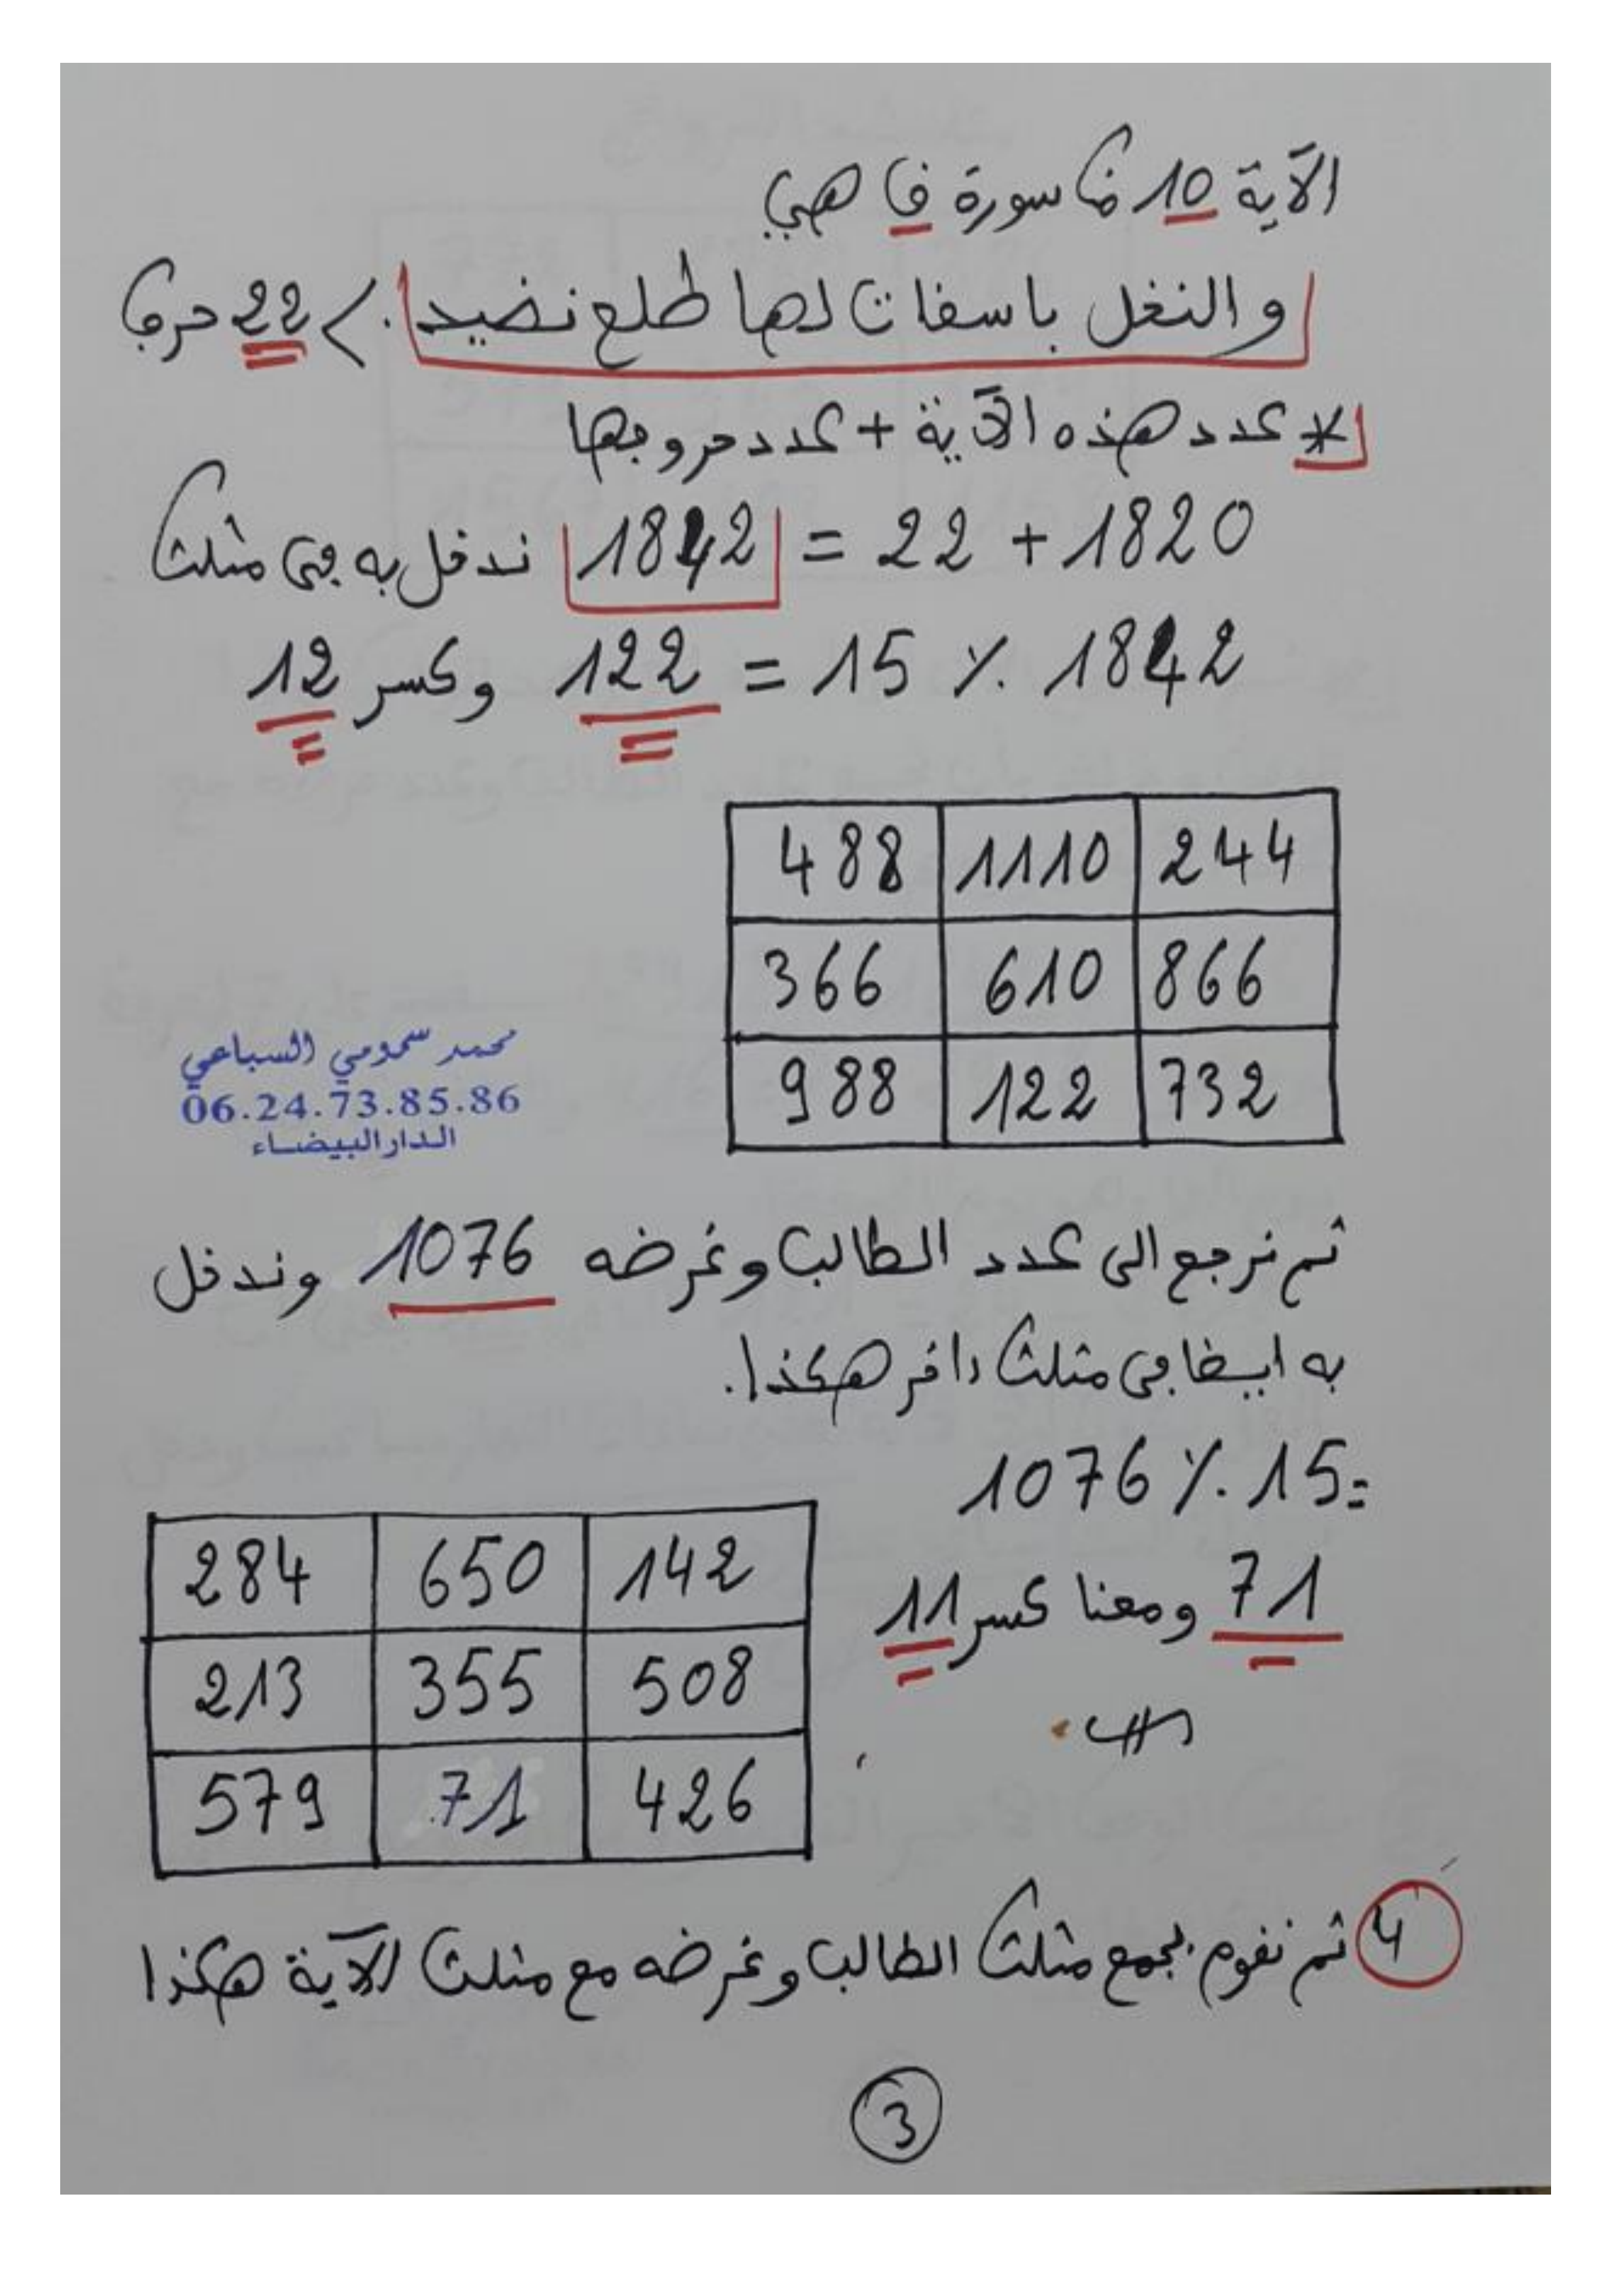 الآية 10 من سورة ق هي
والنخل باسقات لها طلع نضيد. > 22 حرفا
* عدد هذه الآية + عدد حروفها
1820 + 22 = 1842 ندخل به في مثلث
1842 ٪ 15 = 122 وكسر 12
488 1110 244
366 610 866
988 122 732
محمد سمومي السباعي
06.24.73.85.86
الدار البيضاء
ثم نرجع الى عدد الطالب وغرضه 1076 وندخل
به ايضا في مثلث داخر هكذا.
1076 ٪ 15 =
71 ومعنا كسر 11
284 650 142
213 355 508
579 71 426
4 ثم نقوم بجمع مثلث الطالب وغرضه مع مثلث الآية هكذا
3